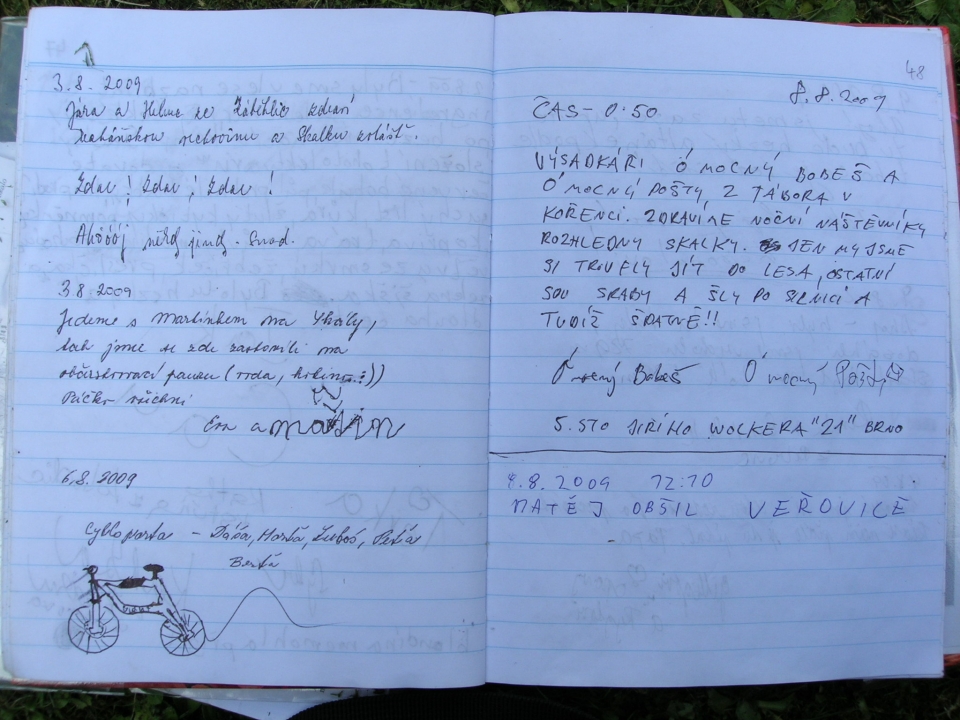 3.8.2009
Jára a Helena ze Zábřehu zdraví
a Skalku zvlášť.
Zdar! Zdar! Zdar!
Ahóóój někdy jindy. Snad.
3.8 2009
Jedeme s Martínkem na Skály,
tak jsme se zde zastavili na
občerstvovací pauzu (voda, :))
všichni
Eva a martin
6.8.2009
Cykloparta – Dáša, Honza, Luboš, Péťa
Berta
48
8.8.2009
ČAS – 0:50
VÝSADKÁŘI Ó MOCNÝ BOBEŠ A
Ó MOCNÝ POŠTY Z TÁBORA V
KOŘENCI. ZDRAVÍME NOČNÍ NÁŠTĚVNÍKY
ROZHLEDNY SKALKY. JEN MY JSME
SI TROUFLY JÍT DO LESA, OSTATNÍ
SOU SRABY A ŠLY PO SILNICI A
TUDÍŽ ŠPATNĚ!!
Ó mocný Bobeš Ó mocný Pošty
5. STO JIŘÍHO WOLKERA "21" BRNO
8.8.2009 12:10
MATĚJ OBŠIL VEŘOVICE